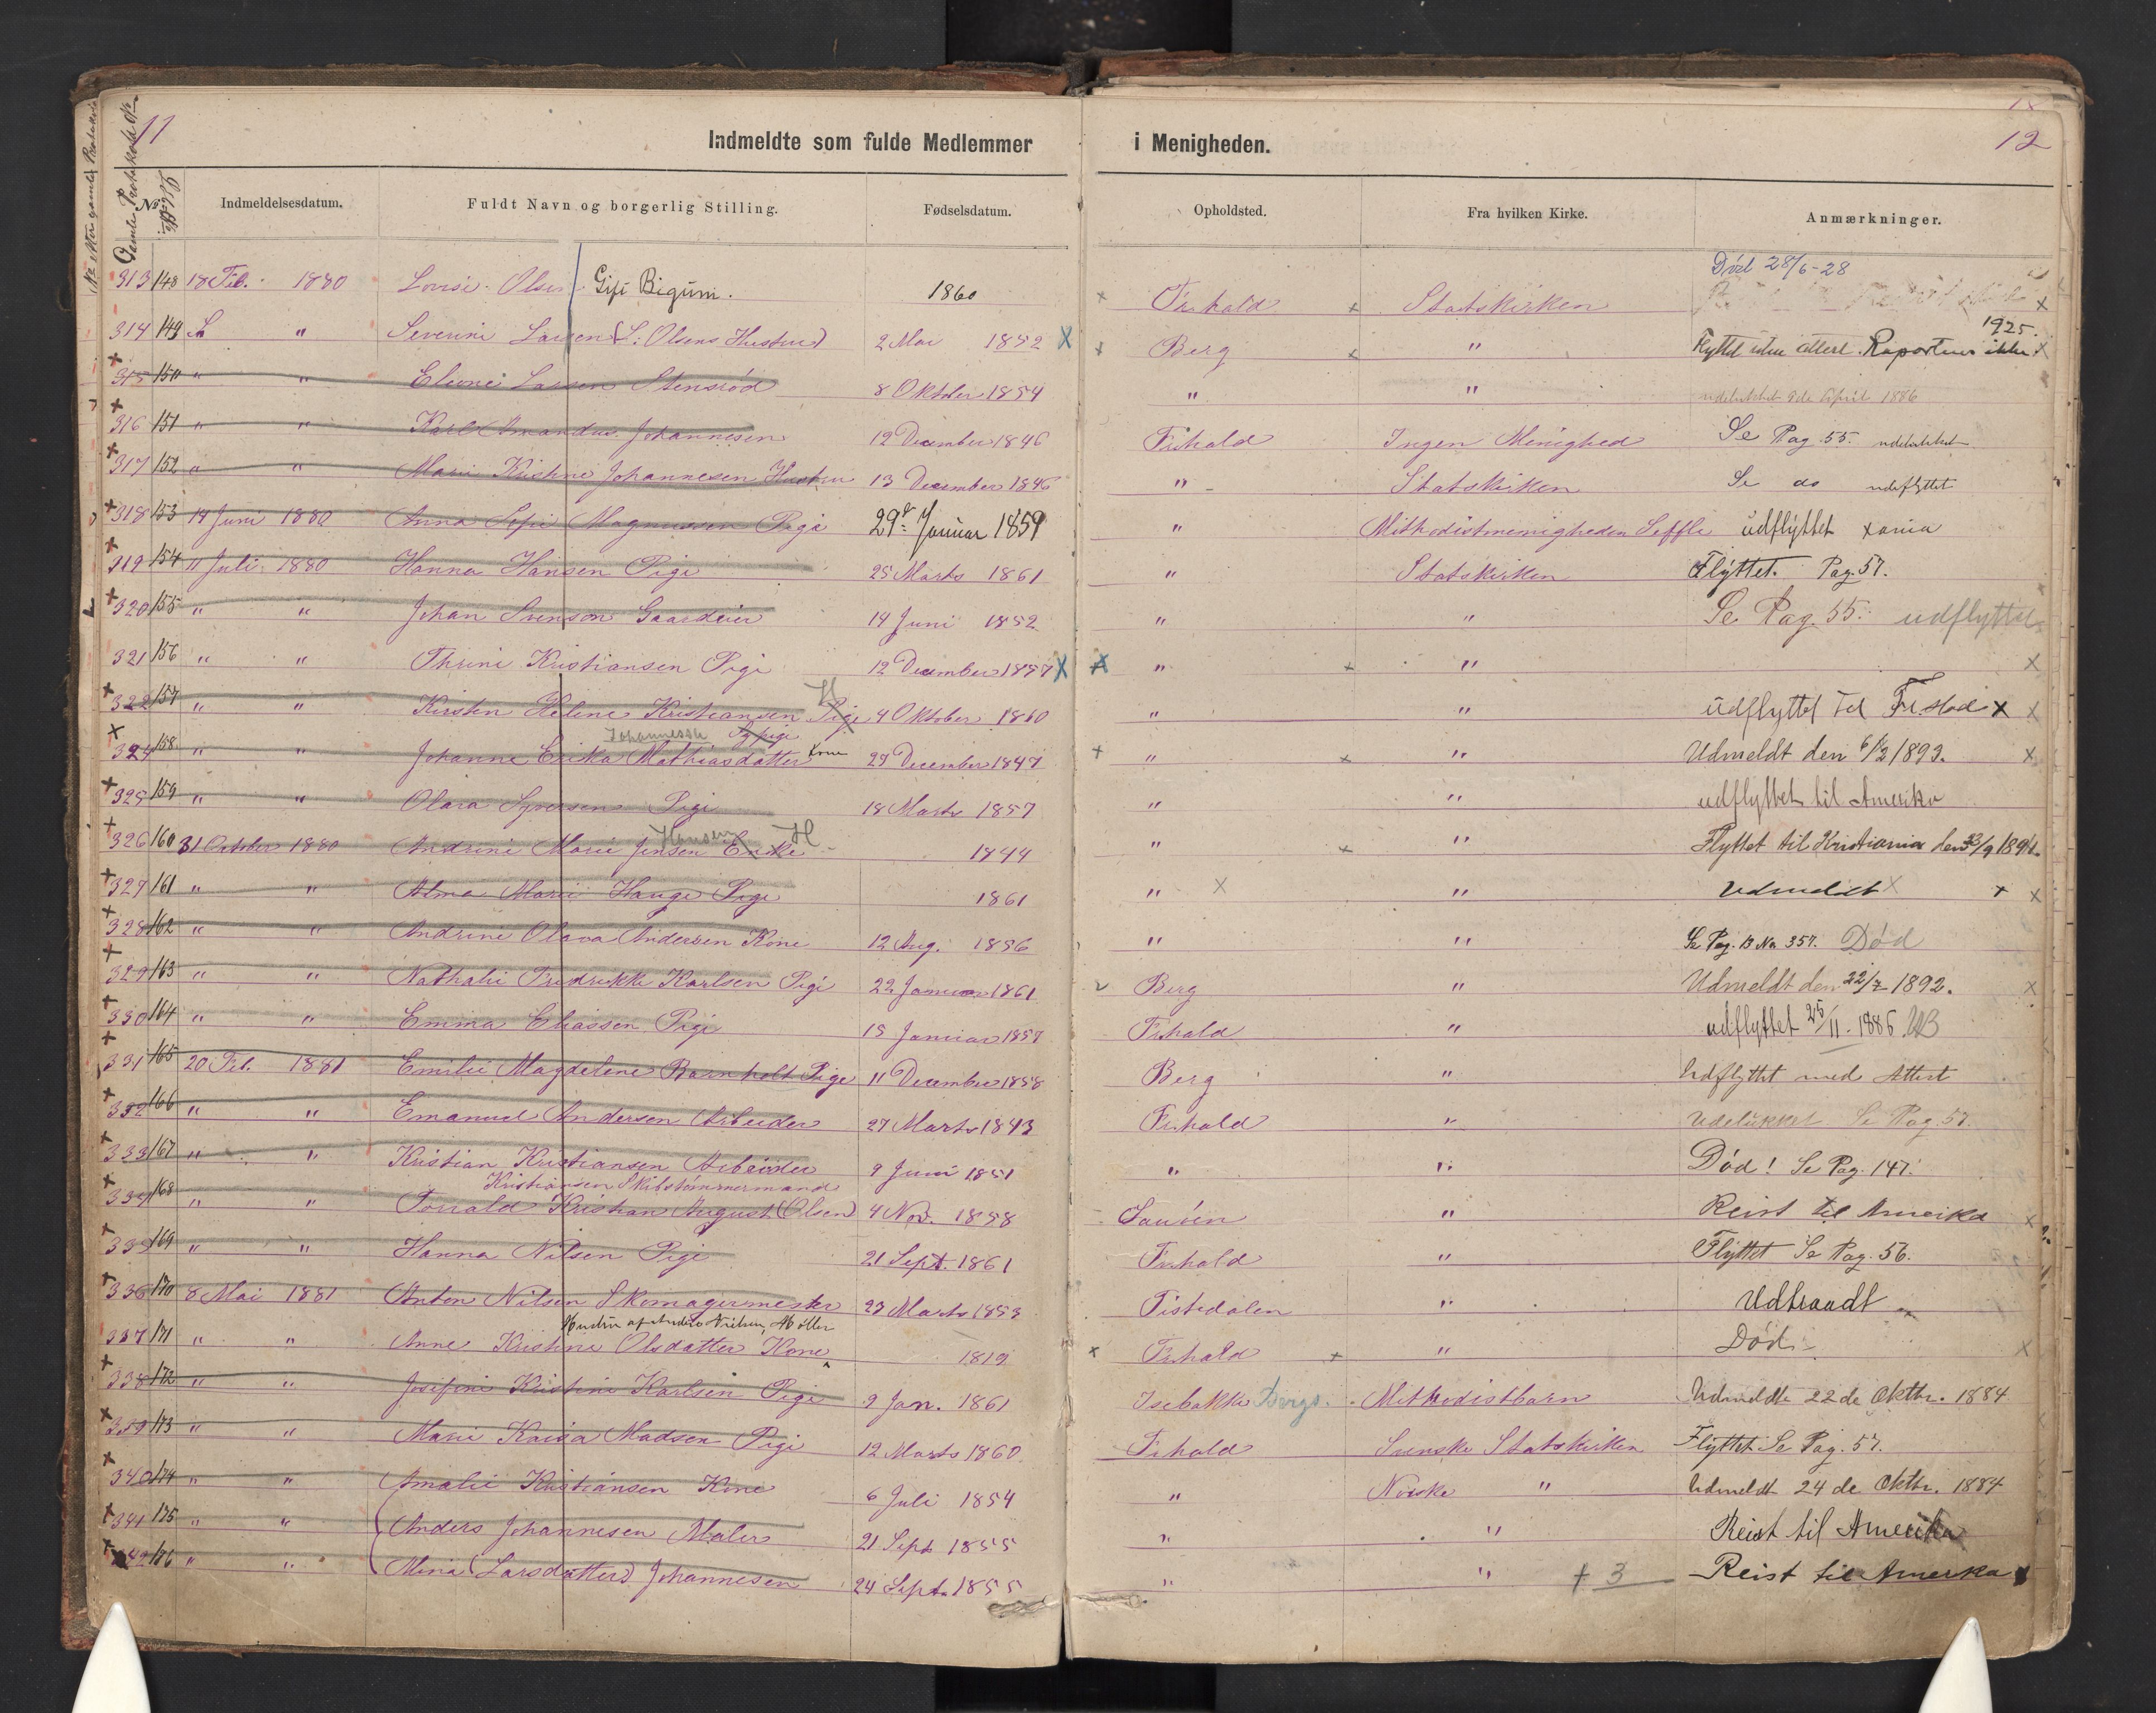 11
Indmeldte som fulde Medlemmer i Menigheden.
12
No. Indmeldelsesdatum. Fuldt Navn og borgerlig Stilling. Fødselsdatum. Opholdsted. Fra hvilken Kirke. Anmærkninger.
Død 28/6-28
313 148 18 Feb. 1880 Lovise Olsen Gift Bigum. 1860 Fr.hald Statskirken
1925.
314 149 " Severine Larsen (S. Olsens Hustru) 2 Mai 1852 Berg " Flyttet uden attest. Raporteres ikke
315 150 " " Elione Larsen Stensrød 8 Oktober 1854 " " udelukket April 1886
316 151 " " Karl Amandus Johannesen 12 December 1846 Fr.hald Ingen Menighed Se Pag 55. udelukket
317 152 " " Marie Kristine Johannesen Hustru 13 December 1846 " Statskirken Se do udeflyttet
318 153 14 Juni 1880 Anna Sofie Magnussen Pige 29de Januar 1859 " Methodistmenigheden Seffle udflyttet Xania
319 154 11 Juli 1880 Hanna Hansen Pige 25 Marts 1861 " Statskirken Flyttet. Pag. 57.
320 155 " " Johan Svenson Gaardeier 14 Juni 1852 " " Se Pag. 55. udflyttet
321 156 " " Thrine Kristiansen Pige 12 December 1857 " "
322 157 " " Kirsten Heline Kristiansen Pige 4 Oktober 1860 " " udflyttet til Fr.stad
Johannessen Sypige
324 158 " " Johanne Erika Mathiasdatter Kone 29 December 1847 " " Udmeldt den 6/2 1893.
325 159 " " Olava Syversen Pige 18 Marts 1857 " " udflyttet til Amerika
Hansen H
326 160 31 October 1880 Andrine Marie Jensen Enke 1844 " " Flyttet til Kristiania den 23/9 1891.
327 161 " " Alma Marie Hauge Pige 1861 " " Udmeldt
328 162 " " Andrine Olava Andersen Kone 12 Aug. 1856 " " Se Pag. 13 No 357. Død
329 163 " " Nathalie Fredrikke Karlsen Pige 22 Januar 1861 Berg " Udmeldt den 22/7 1892.
330 164 " " Emma Eliassen Pige 15 Januar 1857 Fr.hald " udflyttet 25/11 - 1886
331 165 20 Feb. 1881 Emilie Magdelene Barnholt Pige 11 December 1858 Berg " Udflyttet med Attest
332 166 " " Emanuel Andersen Arbeider 27 Marts 1843 Fr.hald " Udelukket Se Pag. 57.
333 167 " " Kristian Kristiansen Arbeider 9 Juni 1851 " " Død! Se Pag. 147.
Kristiansen Skibstømmermand
334 168 " " Torvald Kristian August (Olsen) 4 Nov. 1858 Sauøen " Reist til Amerika
335 169 " " Hanna Nilsen Pige 21 Sept. 1861 Fr.hald " Flyttet Se Pag. 56.
336 170 8 Mai 1881 Anton Nilsen Skomagermester 23 Marts 1853 Tistedalen " Udtraadt
Hustru af Anders Nielsen, Møller
337 171 " " Anne Kristine Olsdatter Kone 1819 Fr.hald " Død
338 172 " " Josefine Kristine Karlsen Pige 9 Jan. 1861 Isebakke Bergs. Methodistbarn Udmeldte 22de Oktbr. 1884
339 173 " " Marie Kaisa Madsen Pige 12 Marts 1860 Fr.hald Svenske Statskirken Flyttet Se Pag. 57.
340 174 " " Amalie Kristiansen Kone 6 Juli 1854 " Norske " Udmeldt 24de Oktbr. 1884
341 175 " " Anders Johannesen Maler 21 Sept 1855 " " Reist til Amerika
342 176 " " Mina (Larsdatter) Johannesen 24 Sept. 1855 " " + 3 Reist til Amerika